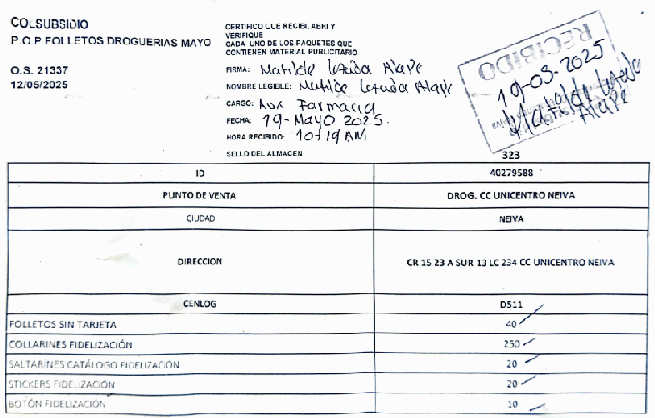 COLSUBSIDIO
P.O.P FOLLETOS DROGUERIAS MAYO
O.S. 21337
12/05/2025
CERTIFICO QUE RECIBI, ABRI Y
VERIFIQUE
CADA UNO DE LOS PAQUETES QUE
CONTIENEN MATERIAL PUBLICITARIO
FIRMA: Matilde Losada Alape
NOMBRE LEGIBLE: Matilde Losada Alape
CARGO: Aux Farmacia
FECHA: 19-Mayo 2025.
HORA RECIBIDO: 10:19 AM
SELLO DEL ALMACEN
RECIBIDO
19-05-2025
Matilde Losada
Alape
323
ID 40279588
PUNTO DE VENTA DROG. CC UNICENTRO NEIVA
CIUDAD NEIVA
DIRECCION CR 15 23 A SUR 13 LC 234 CC UNICENTRO NEIVA
CENLOG D511
FOLLETOS SIN TARJETA 40
COLLARINES FIDELIZACIÓN 250
SALTARINES CATÁLOGO FIDELIZACIÓN 20
STICKERS FIDELIZACIÓN 20
BOTÓN FIDELIZACIÓN 10